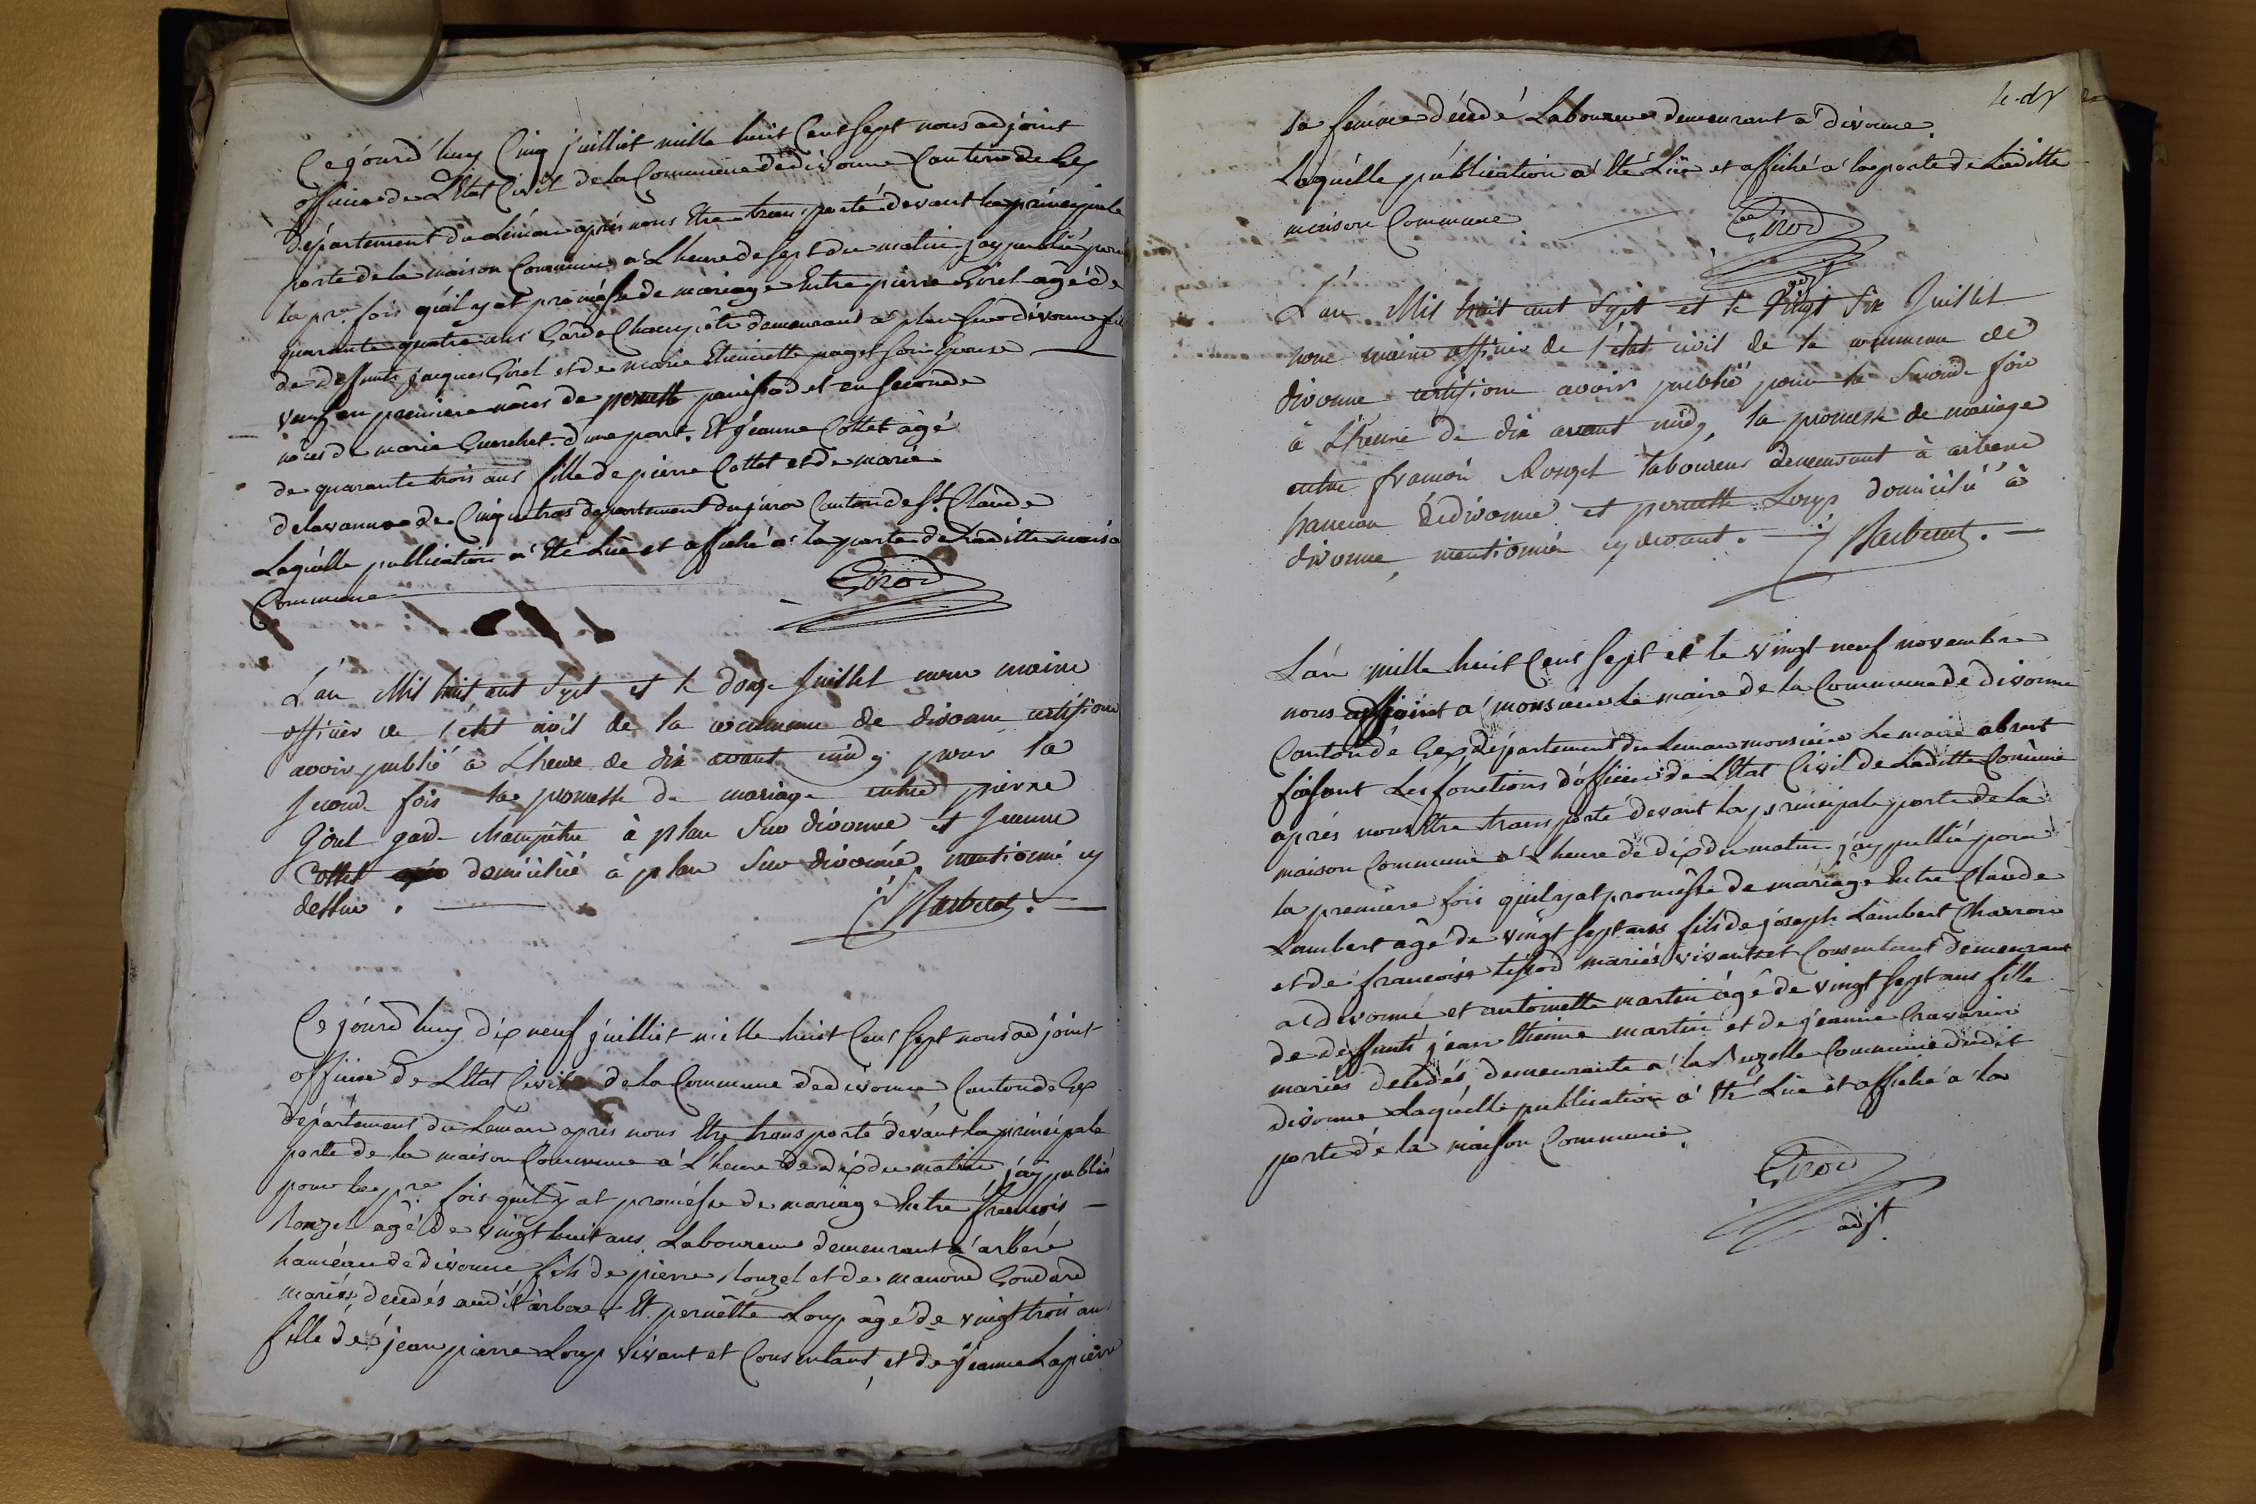 Ce jourd'huy Cinq juilliet mille huit Cent Sept nous adjoint
officier de L'Etat Civil de la Commune de divonne Canton de Gex
département du Léman aprés nous Etre transporté devant la principale
porte de la maison Commune a L'heure de Sept du matin jay publié pour
la pre. fois quil y at promésse de mariage Entre pierre Girel agé de
quarante quatre ans Garde Champêtre demeurant a plan Sur divonne fils
de deffunts jacques Girel et de marie Etiennette paget Son Epouse
veuf en premiere nôces de pernette panissod et en Seconde
nôces de marie Guerchet. d'une part. Et jéanne Cottet agé
de quarante trois ans fille de pierre Cottet et de marie
de Cinquetral département du jura Canton de St. Claude
Laquélle publication a Eté Lüe et affiché a la porte de Laditte maison
Commune
Girod
L'an Mil huit cent Sept et le douze Juillet nous maire
officier de l'état civil de la commune de divonne certifions
avoir publié à L'heure de dix avant midy pour la
Seconde fois la promesse de mariage entre pierre
Girel garde champêtre à plan Sur divonne et Jeanne
Cottet domiciliée à plan Sur divonne, mentionné cy
dessus.
Ce jourd'huy dix neuf juilliet mille huit Cent Sept nous adjoint
officier de L'Etat Civil de la Commune de divonne Canton de Gex
département du Léman aprés nous Etre transporté dévant la principale
porte de la maison Commune a L'heure de dix du matin j'ay publié
pour la pre. fois quil y at promésse de mariage Entre francois
Rouzet agé de vingt huit ans Laboureur demeurant a arbere
haméau de divonne fils de pierre Rouzet et de manond Goudard
mariés, décédés audit arbere. Et pernétte Loup agé de vingt trois ans
fille de jean pierre Loup vivant et Consentant, et de jéanne Lapierre
Sa femme décédé Laboureur demeurant a divonne.
Laquélle publication a Eté Lüe et affiché a la porte de Laditte
maison Commune
Girod
L'an Mil huit cent Sept et le Vingt Six Juillet
nous maire officier de l'état civil de la commune de
divonne certifions avoir publié pour la Seconde fois
à L'heure de dix avant midy, la promesse de mariage
entre francois Rouzet laboureur demeurant à arbere
hameau de divonne et pernette Loup domicilié à
divonne, mentionnés cy devant.
L'an mille huit Cent Sept et le vingt neuf novembre
nous adjoint a monsieur Le maire de la Commune de divonne
Canton de Gex département du Leman monsieur Le maire absent
faisant Les fonctions d'officier de L'Etat Civil de Laditte Commune
aprés nous Etre transporté devant la principale porte de la
maison Commune a L'heure de dix du matin j'ay publié pour
la premiere fois quil y at promésse de mariage Entre Claude
Lambert agé de vingt Sept ans fils de joseph Lambert Charron
et de francoise tissod mariés vivants et Consentant demeurant
a divonne et antoinette martin agé de vingt Sept ans fille
de deffunts jéan Etienne martin et de jéanne
mariés décédés, demeurante a la Commune dudit
divonne Laquélle publication a Eté Lüe et affiché a la
porte de la maison Commune.
Girod
adjt.